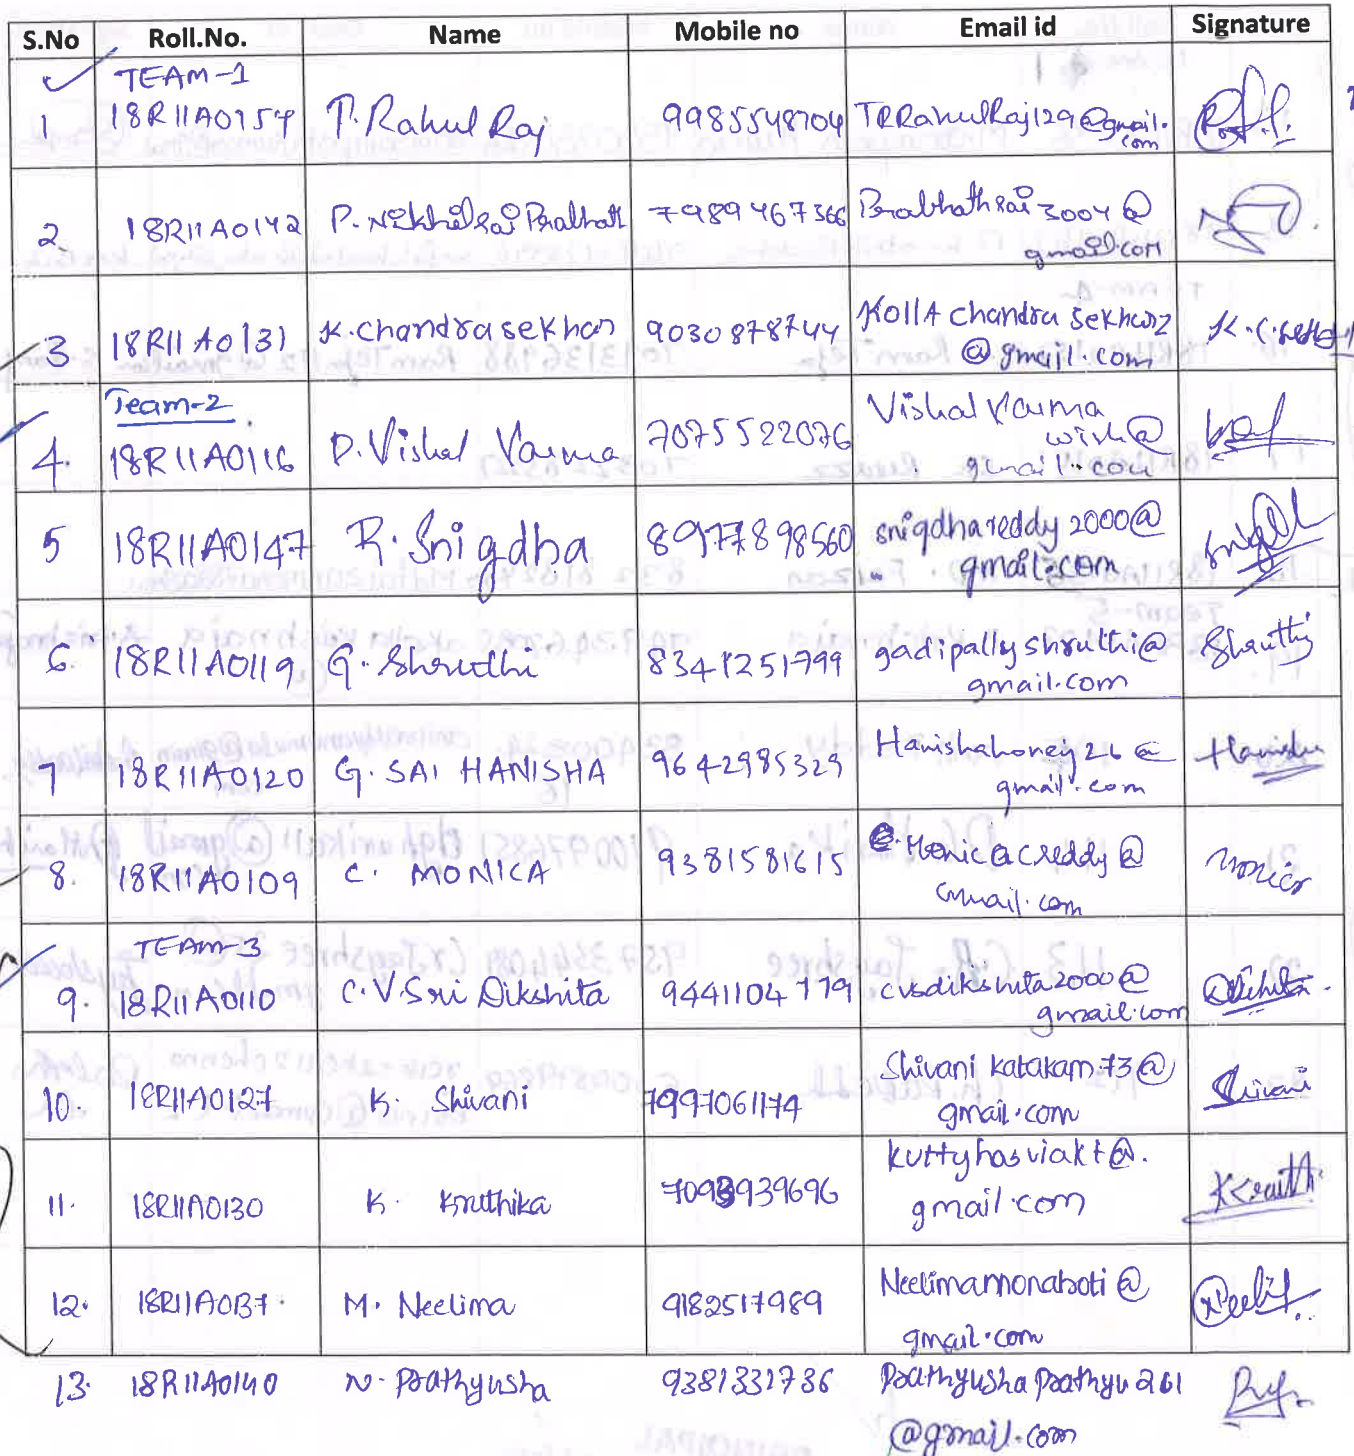 S.No Roll.No. Name Mobile no Email id Signature
TEAM-1
1 18R11A0154 P. Rahul Raj 9985548704 TRRahulRaj129@gmail.
com
2. 18R11A0142 P. Nikhil sai Prabhath 7989467366 Prabhathsai3004@
gmail.com
3 18R11A0131 K. chandra sekhar 9030878744 KollA chandra sekhar2
@gmail.com
Team-2
4. 18R11A0116 D. Vishal Varma 7075522076 Vishal Varma
wish@
gmail.com
5 18R11A0147 R. Snigdha 8977898560 snigdhareddy2000@
gmail.com
6. 18R11A0119 G. Shruthi 8341251799 gadipallyshruthi@ Shruthi
gmail.com
7 18R11A0120 G. SAI HANISHA 9642985329 Hanishahoney26@ Hanisha
gmail.com
8. 18R11A0109 C. MONICA 9381581615 Monica creddy@ Monica
gmail.com
TEAM-3
9. 18R11A0110 C.V. Sri Dikshita 9441104779 cvsdikshita2000@ Dikshita
gmail.com
10. 18R11A0127 K. Shivani 7997061174 Shivani katakam.73@ Shivani
gmail.com
11. 18R11A0130 K. Kruthika 7093939696 kuttyhasviakt@.
gmail.com
12. 18R11A0137. M. Neelima 9182517989 Neelimamonaboti@
gmail.com
13. 18R11A0140 N. Prathyusha 9381331736 Prathyusha prathyu261
@gmail.com